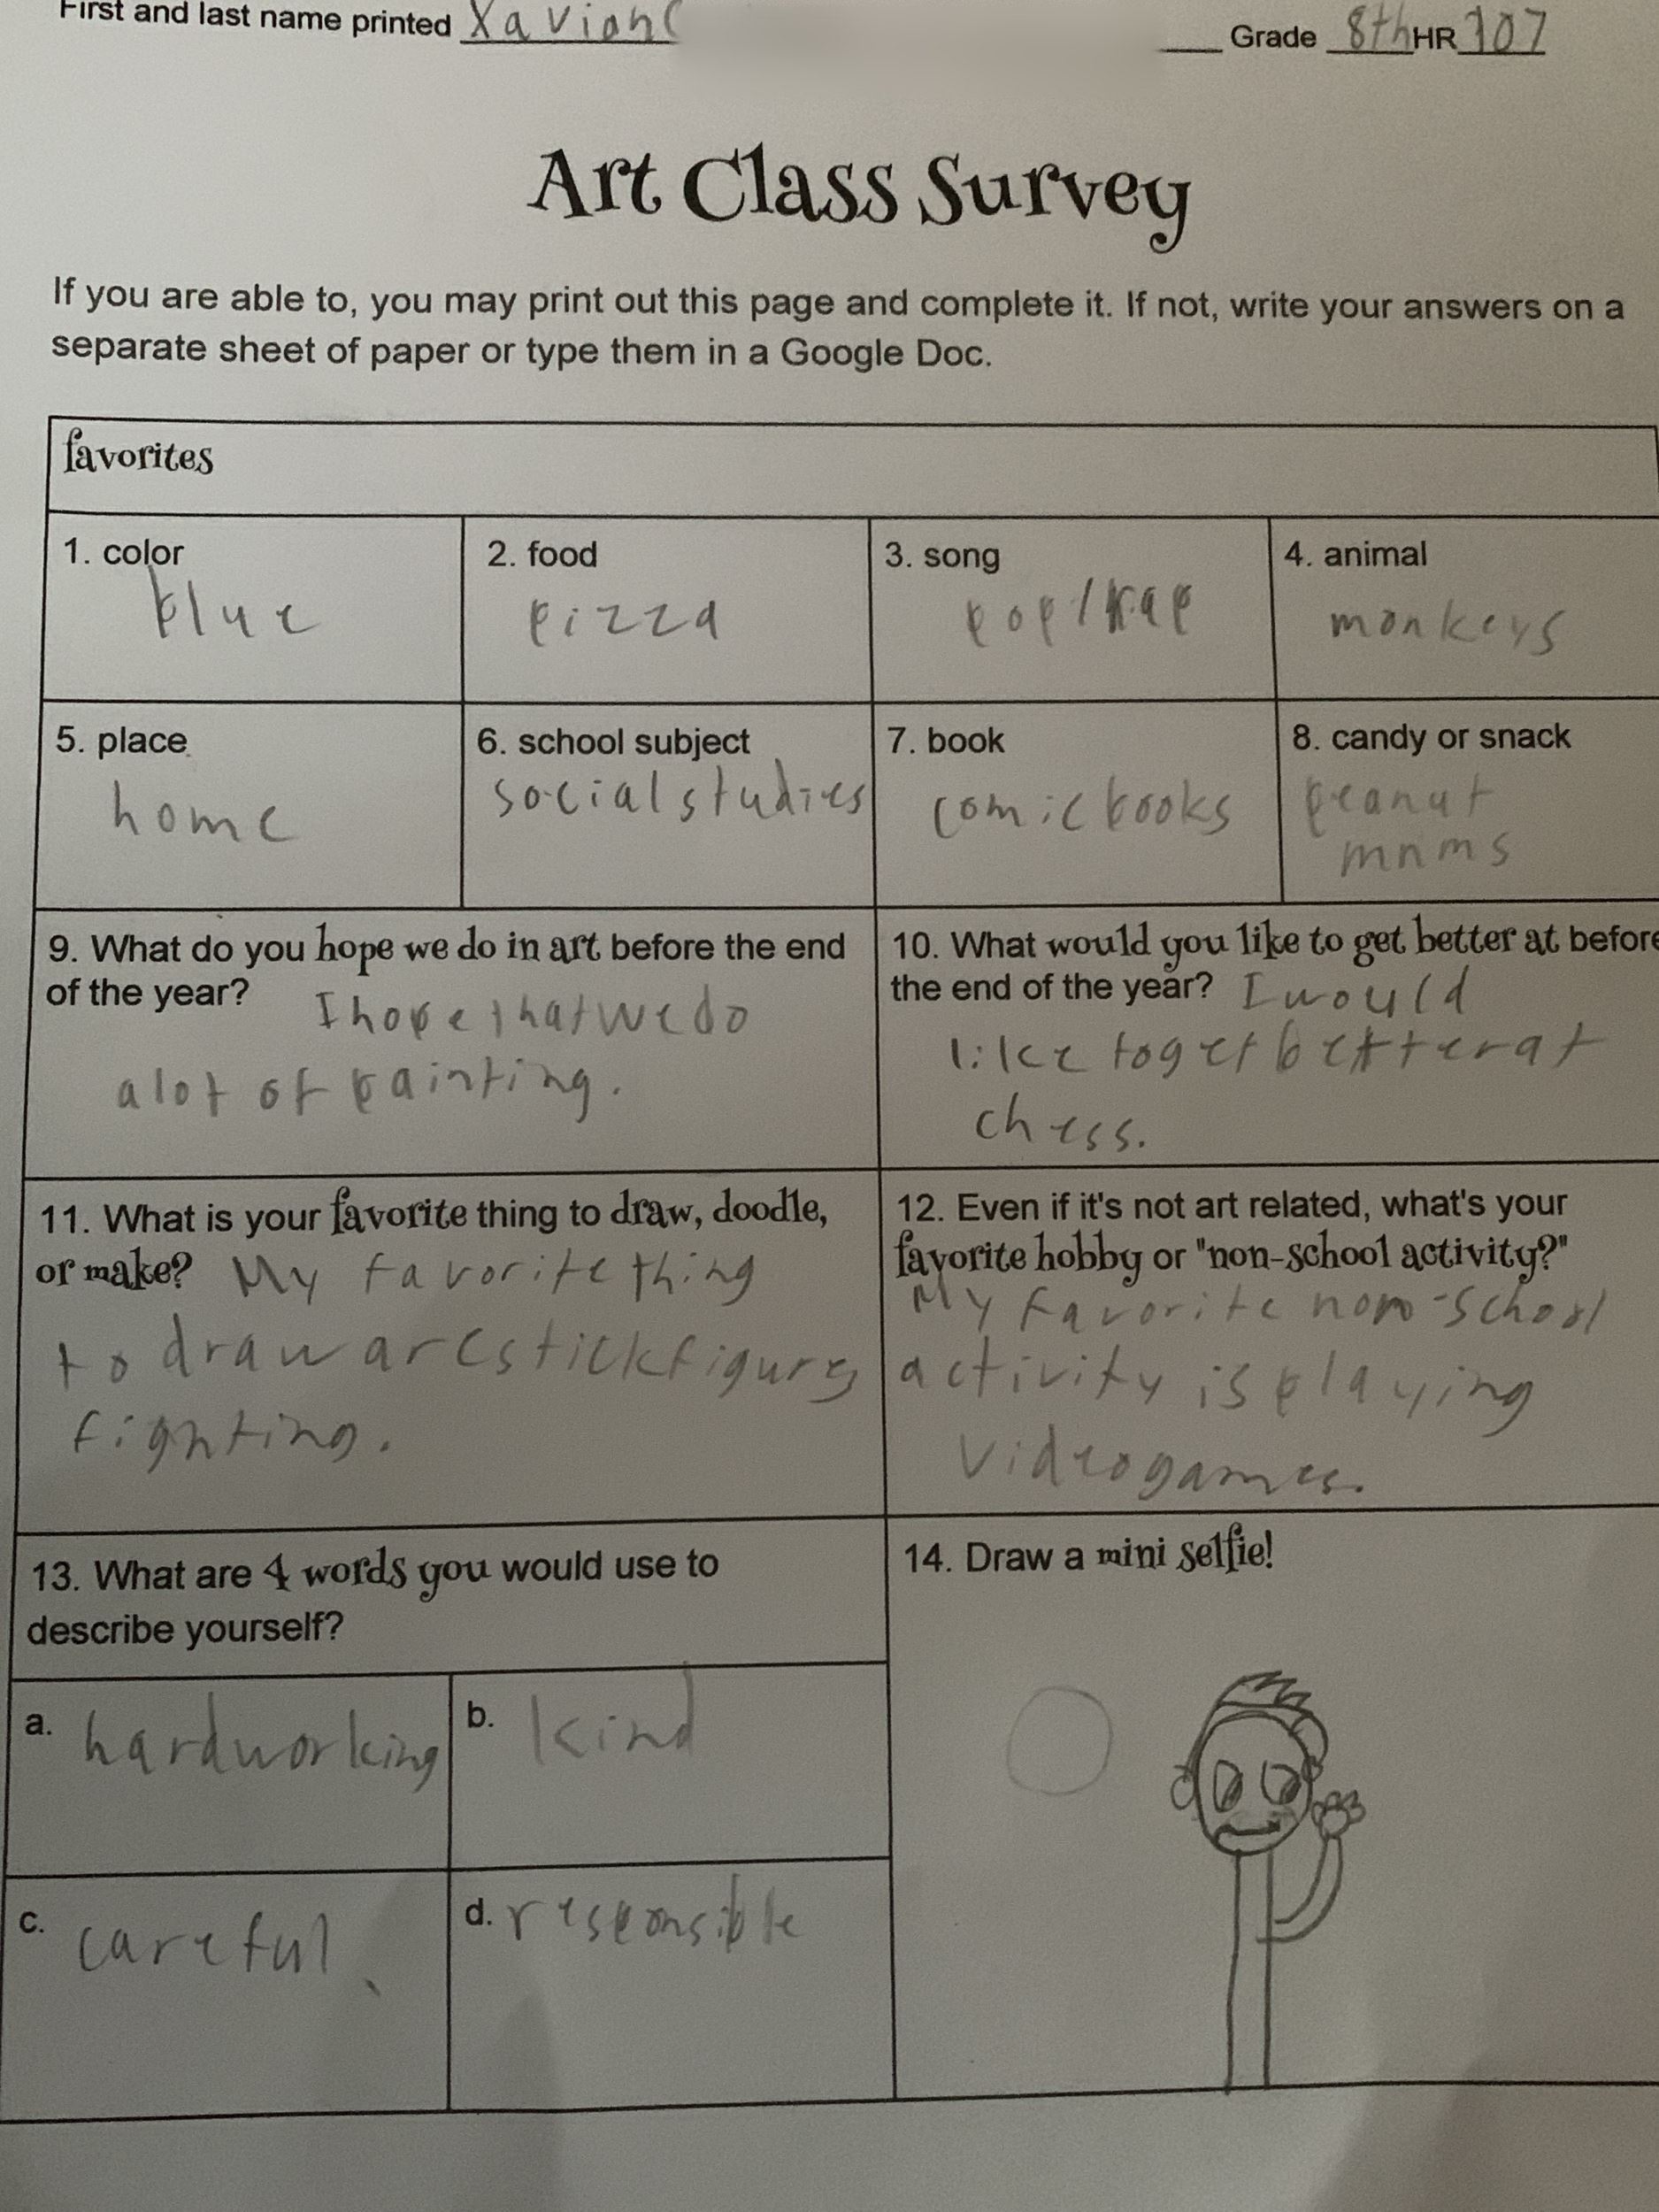 First and last name printed Xavian Grade 8th HR 107
Art Class Survey
If you are able to, you may print out this page and complete it. If not, write your answers on a
separate sheet of paper or type them in a Google Doc.
favorites
1. color
blue
2. food
pizza
3. song
pop/rap
4. animal
monkeys
5. place
home
6. school subject
social studies
7. book
comic books
8. candy or snack
peanut
mnms
9. What do you hope we do in art before the end
of the year? I hope that we do
a lot of painting.
10. What would you like to get better at before
the end of the year? I would
like to get better at
chess.
11. What is your favorite thing to draw, doodle,
or make? My favorite thing
to draw are stick figures
fighting.
12. Even if it's not art related, what's your
favorite hobby or "non-school activity?"
My favorite non-school
activity is playing
videogames.
13. What are 4 words you would use to
describe yourself?
a. hardworking
b. kind
c. careful
d. responsible
14. Draw a mini selfie!